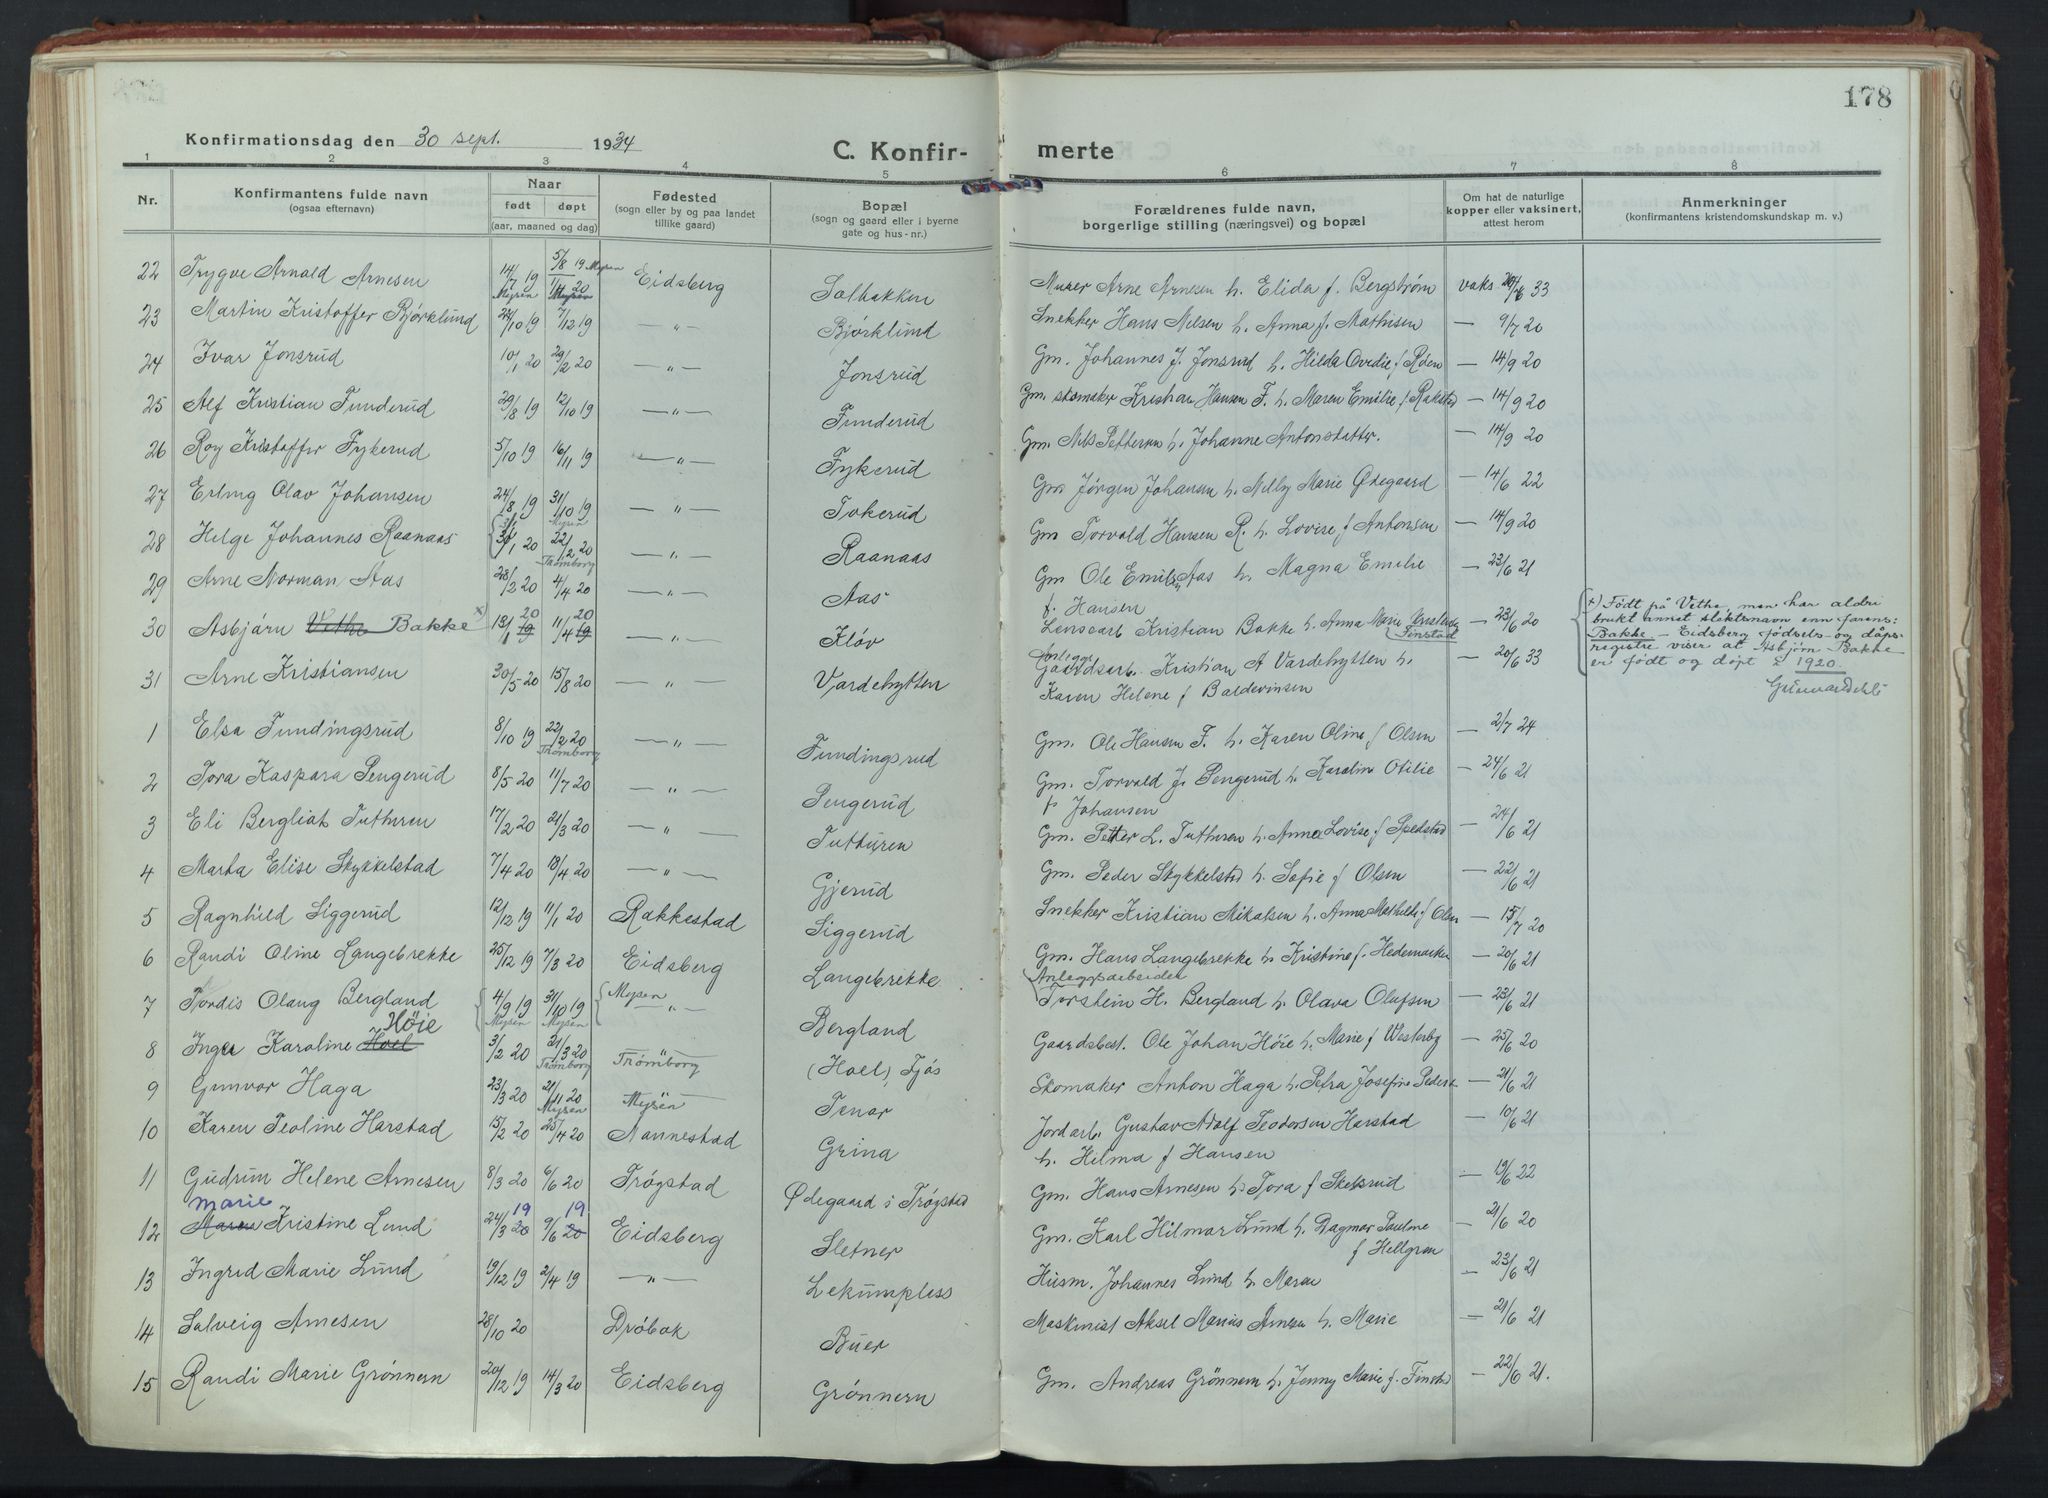 178
Konfirmationsdag den 30 sept. 1934
C. Konfir- merte
1 2 3 4 5 6 7 8
Nr.
Konfirmantens fulde navn
(ogsaa efternavn)
Naar
født døpt
(aar, maaned og dag)
Fødested
(sogn eller by og paa landet
tillike gaard)
Bopæl
(sogn og gaard eller i byerne
gate og hus-nr.)
Forældrenes fulde navn,
borgerlige stilling (næringsvei) og bopæl
Om hat de naturlige
kopper eller vaksinert,
attest herom
Anmerkninger
(konfirmantens kristendomskundskap m. v.)
22 Trygve Arnald Arnesen 14/7 19 Mysen 5/8 19 Mysen Eidsberg Solbakken Murer Arne Arnesen h. Elida f. Bergstrøm vaks 33
23 Martin Kristoffer Bjørklund 24/10 19 7/12 19 — " — Bjørklund Snekker Hans Nilsen h. Anna f. Mathisen — 9/7 20
24 Ivar Jonsrud 10/1 20 29/2 20 — " — Jonsrud Gm. Johannes J. Jonsrud h. Hilda Ovedie f. Roen — 14/9 20
25 Alf Kristian Funderud 29/8 19 12/10 19 — " — Funderud Gm. skomaker Kristian Hansen F. h. Maren Emilie f. Rakstad — 14/9 20
26 Roy Kristoffer Fykerud 5/10 19 16/11 19 — " — Fykerud Gm. Nils Pettersen h. Johanne Antonsdatter. — 14/9 20
27 Erling Olav Johansen 24/8 19 31/10 19 Mysen — " — Tokerud Gm Jørgen Johansen h. Nelly Marie Ødegaard — 14/6 22
28 Helge Johannes Raanaas 30/1 20 22/2 20 Trømborg — " — Raanaas Gm Torvald Hansen R. h. Lovise f. Antonsen — 14/9 20
29 Arne Norman Aas 28/2 20 4/4 20 — " — Aas Gm Ole Emil Aas h. Magna Emilie
f. Hansen — 23/6 21
30 Asbjørn Vethe Bakke x) 13/1 19 20 11/4 19 20 — " — Kløv Lensearb. Kristian Bakke h. Anna Marie
Finstad — 23/6 20
x) Født på Vethe, men har aldri
brukt annet slektsnavn enn farens:
Bakke – Eidsberg fødsels- og dåps-
registre viser at Asbjørn Bakke
er født og døpt i 1920.
31 Arne Kristiansen 30/5 20 15/8 20 — " — Vardehytten Anleggs
Gaardsarb. Kristian A Vardehytten h.
Karen Helene f Baldevinsen — 20/6 33
1 Elsa Fundingsrud 8/10 19 22/2 20 Trømborg — " — Fundingsrud Gm. Ole Hansen F. h. Karen Oline f Olsen — 2/7 24
2 Tora Kaspara Pengerud 8/5 20 11/7 20 — " — Pengerud Gm. Torvald J. Pengerud h. Karoline Otilie
f. Johansen — 24/6 21
3 Eli Bergliot Tutturen 17/2 20 21/3 20 — " — Tutturen Gm. Petter L. Tutturen h. Anna Lovise f Spedstad — 24/6 21
4 Marta Elise Skykkelstad 7/4 20 18/4 20 — " — Gjerud Gm. Peder Skykkelstad h. Sofie f Olsen — 22/6 21
5 Ragnhild Siggerud 12/12 19 11/1 20 Rakkestad Siggerud Snekker Kristian Mikalsen h. Anna Mathilde f Olsen — 15/7 20
6 Randi Oline Langebrekke 25/12 19 7/3 20 Eidsberg Langebrekke Gm. Hans Langebrekke h. Kristine f. Hedemarken — 20/6 21
7 Tordis Olaug Bergland 4/9 19 Mysen 31/10 19 Mysen Mysen — " — Bergland Anleggsarbeider
Torstein H. Bergland h. Olava Olafsen — 23/6 21
8 Inger Karoline Hoel Høie 3/2 20 21/3 20 Trømborg Trømborg (Hoel) Fjøs Gaardsbest. Ole Johan Høie h. Marie f Westerby — 25/6 20
9 Gunvor Haga 23/3 20 21/11 20 Mysen Mysen Tenor Skomaker Anton Haga h. Petra Josefine Peders — 21/6 21
10 Karen Teoline Harstad 15/2 20 25/4 20 Nannestad Grina Jordarb. Gustav Adolf Teodorsen Harstad
h. Hilma f Hansen — 10/6 21
11 Gudrun Helene Arnesen 8/3 20 6/6 20 Trøgstad Ødegaard i Trøgstad Gm. Hans Arnesen h. Tora f Skelsrud — 19/6 22
12 Maren Marie Kristine Lund 24/3 20 19 9/6 20 19 Eidsberg Sletner Gm. Karl Hilmar Lund h. Dagmar Pauline
f Hellgren — 21/6 20
13 Ingrid Marie Lund 19/12 19 2/4 19 — " — Lekumpless Husm. Johannes Lund h. Maren — 23/6 21
14 Solveig Arnesen 28/10 20 Drøbak Buer Maskinist Aksel Marius Arnesen h. Marie — 21/6 21
15 Randi Marie Grønnern 20/12 19 14/3 20 Eidsberg Grønnern Gm. Andreas Grønnern h. Jenny Marie f. Finstad — 22/6 21.